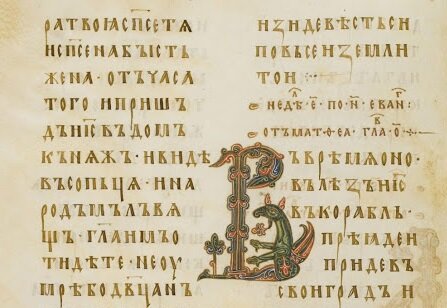 ра твоꙗ сп҃се тѧ
и сп҃сена бꙑсть
жена · отъ часа
того и пришь
дъ іс҃ въ домъ
кънѧжь · и видѣ
въ сопьцѧ · и на
родъ мълвѧ
щь · гл҃а имъ о
тидѣте · не оу
мрѣ бо дв҃ца нъ
изиде вѣсть си
по вьсеи земли
тои ·:·
недѣл · по · н҃ · еванг ·
отъ мат · ѳеа · гла ·
Въ врѣмѧ оно ·
вълѣзъ іс҃
въ корабль ·
прѣиде и
приде въ
свои градъ и